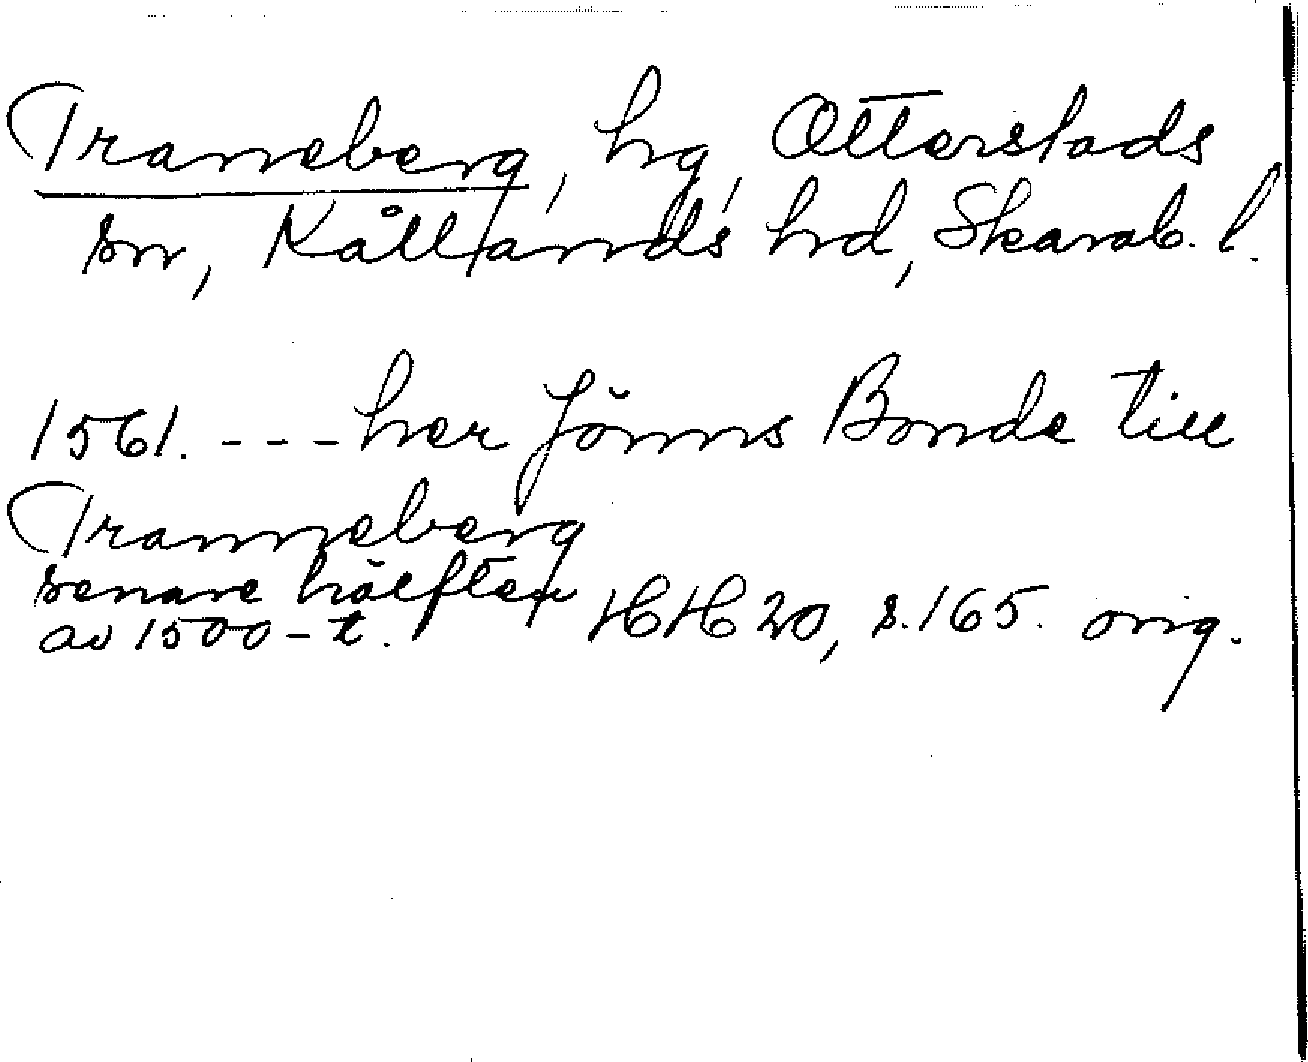 Traneberg, hrg, Otterstads
sn, Kållands hrd, Skarab. l.
1561. --- her Jönns Bonde till
Tranneberg
senare hälften
av 1500-t. HH 20, s. 165. orig.